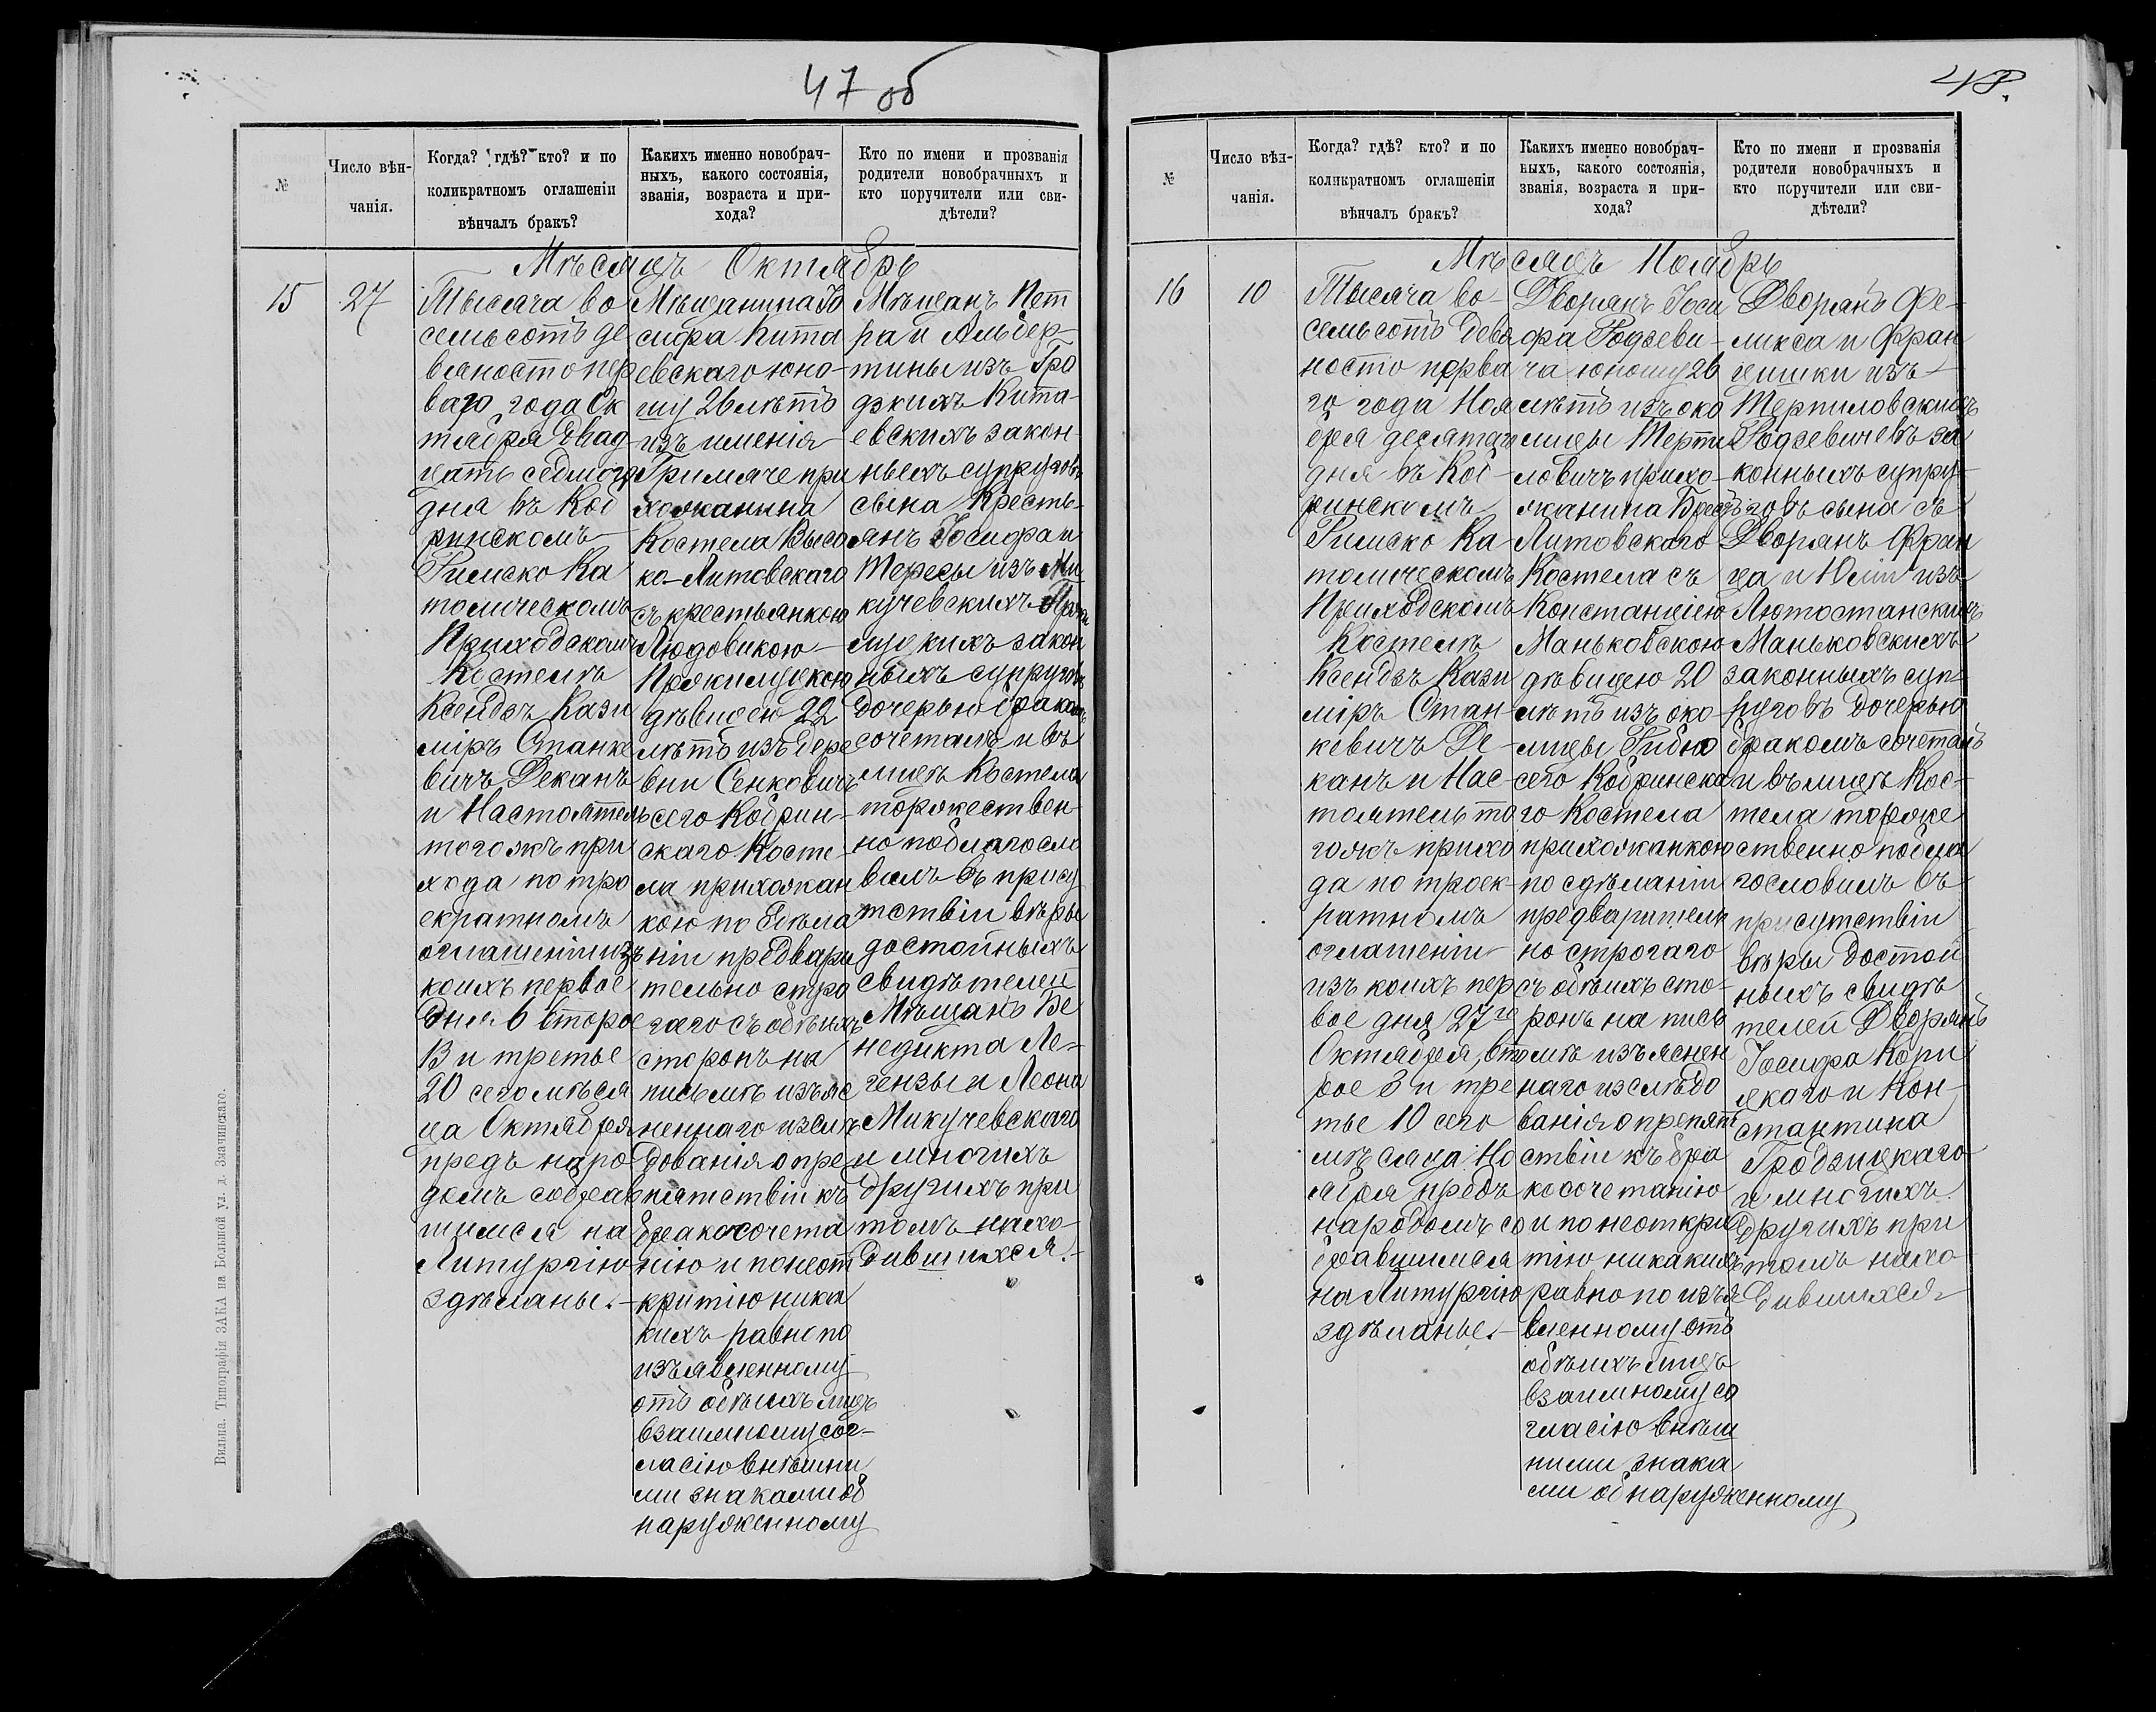 47 об
№
Число вѣн-
чанія.
Когда? гдѣ? кто? и по
коликратномъ оглашеніи
вѣнчалъ бракъ?
Какихъ именно новобрач-
ныхъ, какого состоянія,
званія, возраста и при-
хода?
Кто по имени и прозванія
родители новобрачныхъ и
кто поручители или сви-
дѣтели?
Мѣсяцъ Октябрь
15
27
Тысяча во
семьсотъ де
вяносто пер
ваго года Ок
тября двад
цать седмого
дня въ Коб
ринскомъ
Римско Ка
толическомъ
Приходскомъ
Костелѣ
Ксендзъ Кази
міръ Станке
вичъ Деканъ
и Настоятель
тогожъ при
хода по тро
екратномъ
оглашеніи изъ
коихъ первое
дня 6 второе
13 и третье
20 сего мѣся
ца Октября
предъ наро
домъ собрав
шимся на
Литургію
здѣланы.-
Мѣщанина Іо
сифа Кита
евскаго юно-
шу 26 лѣтъ
изъ имѣнія
Гримяче при
хожанина
Костела Высо
ко-Литовскаго
съ крестьянкою
Людовикою
дѣвицею 22
лѣтъ изъ дере
вни Сенковичъ
сего Кобрин-
скаго Косте-
ла прихожан
кою по здѣла
ніи предвари
тельно стро
гаго съ обѣихъ
сторонъ на
письмѣ изъяс
неннаго изслѣ
дованія о пре
пятствіи къ
бракосочета
нію и по неот
критію ника
кихъ равно по
изъявленному
отъ обѣихъ лицъ
взаимному сог-
ласію внѣшни
ми знаками об
наруженному
Мѣщанъ Пет
ра и Альбер-
тины изъ Гро
дзкихъ Кита-
евскихъ закон-
ныхъ супруговъ
сына Кресть-
янъ Іосифа и
Терезы изъ Ми
кучевскихъ
закон
ныхъ супруговъ
дочерью бракомъ
сочеталъ и въ
лицѣ Костела
торжествен-
но поблагосло
вилъ въ прису
тствіи вѣры
достойныхъ
свидѣтелей
Мѣщанъ Бе
недикта Ле-
гензы и Леона
Микучевскаго
и многихъ
другихъ при
томъ нахо-
дившихся.-
Вильна. Типографія ЗАКА на Большой ул. д. Значинскаго.
48.
№
Число вѣн-
чанія.
Когда? гдѣ? кто? и по
коликратномъ оглашеніи
вѣнчалъ бракъ?
Какихъ именно новобрач-
ныхъ, какого состоянія,
званія, возраста и при-
хода?
Кто по имени и прозванія
родители новобрачныхъ и
кто поручители или сви-
дѣтели?
Мѣсяцъ Ноябрь
16
10
Тысяча во-
семьсотъ девя
носто перва
го года Ноя
бря десятаго
дня въ Коб-
ринскомъ
Римско Ка-
толическомъ
Приходскомъ
Костелѣ
Ксендзъ Кази
міръ Стан-
кевичъ Де-
канъ и Нас-
тоятель то
гожъ прихо
да по троек-
ратномъ
оглашеніи
изъ коихъ пер
вое дня 27го
Октября, вто
рое 3 и тре
тье 10 сего
мѣсяца Но
ября предъ
народомъ со
бравшимся
на Литургію
здѣланы.-
Дворянъ Іоси
фа Родзеви-
ча юношу 26
лѣтъ изъ око
лицы Терпи
ловичъ прихо-
жанина Брестъ
Литовскаго
Костела съ
Констанціею
Маньковскою
дѣвицею 20
лѣтъ изъ око-
лицы Рибно
сего Кобринска
го Костела
прихожанкою
по сдѣланіи
предваритель
но строгаго
съ обѣихъ сто-
ронъ на пись
мѣ изъяснен
наго изслѣдо
ванія о препят
ствіи къ бра
косочетанію
и по неоткри
тію никакихъ
равно по изъя
вленному отъ
обѣихъ лицъ
взаимному со
гласію внѣш
ними знака
ми обнаруженному
Дворянъ Фе-
ликса и Фран
цишки изъ
Терпиловскихъ
Родзевичевъ за
конныхъ супру-
говъ сына съ
Дворянъ Фран
ца и Юліи изъ
Лютостанскихъ
Маньковскихъ
законныхъ суп-
руговъ дочерью
бракомъ сочеталъ
и въ лицѣ Кос-
тела торже
ственно побла
гословилъ въ
присутствіи
вѣры достой
ныхъ свидѣ
телей Дворянъ
Іосифа Кори
цкаго и Кон-
стантина
Гродзицкаго
и многихъ
другихъ при
томъ нахо
дившихся